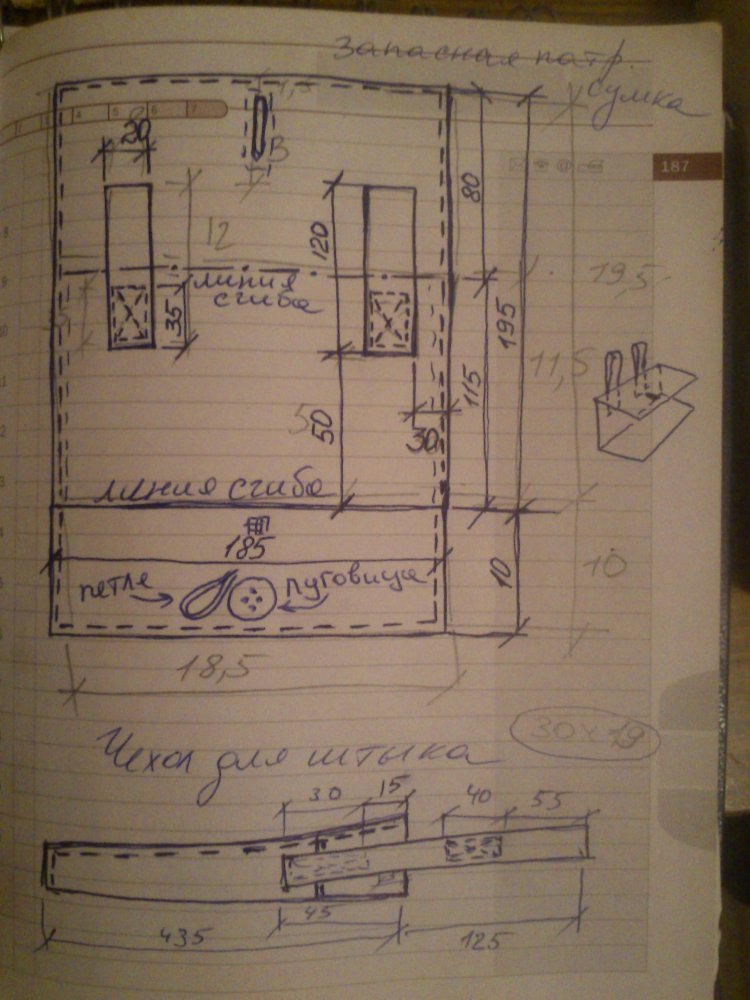 Запасная патр.
сумка
187
4 5 6 7
20
1,5
В
80
12
120
линия
сгиба
35
195
19,5
115
11,5
5
50
30
линия сгиба
185
10
10
петле
пуговица
18,5
30х19
Чехол для штыка
30 15 40 55
45
435
125